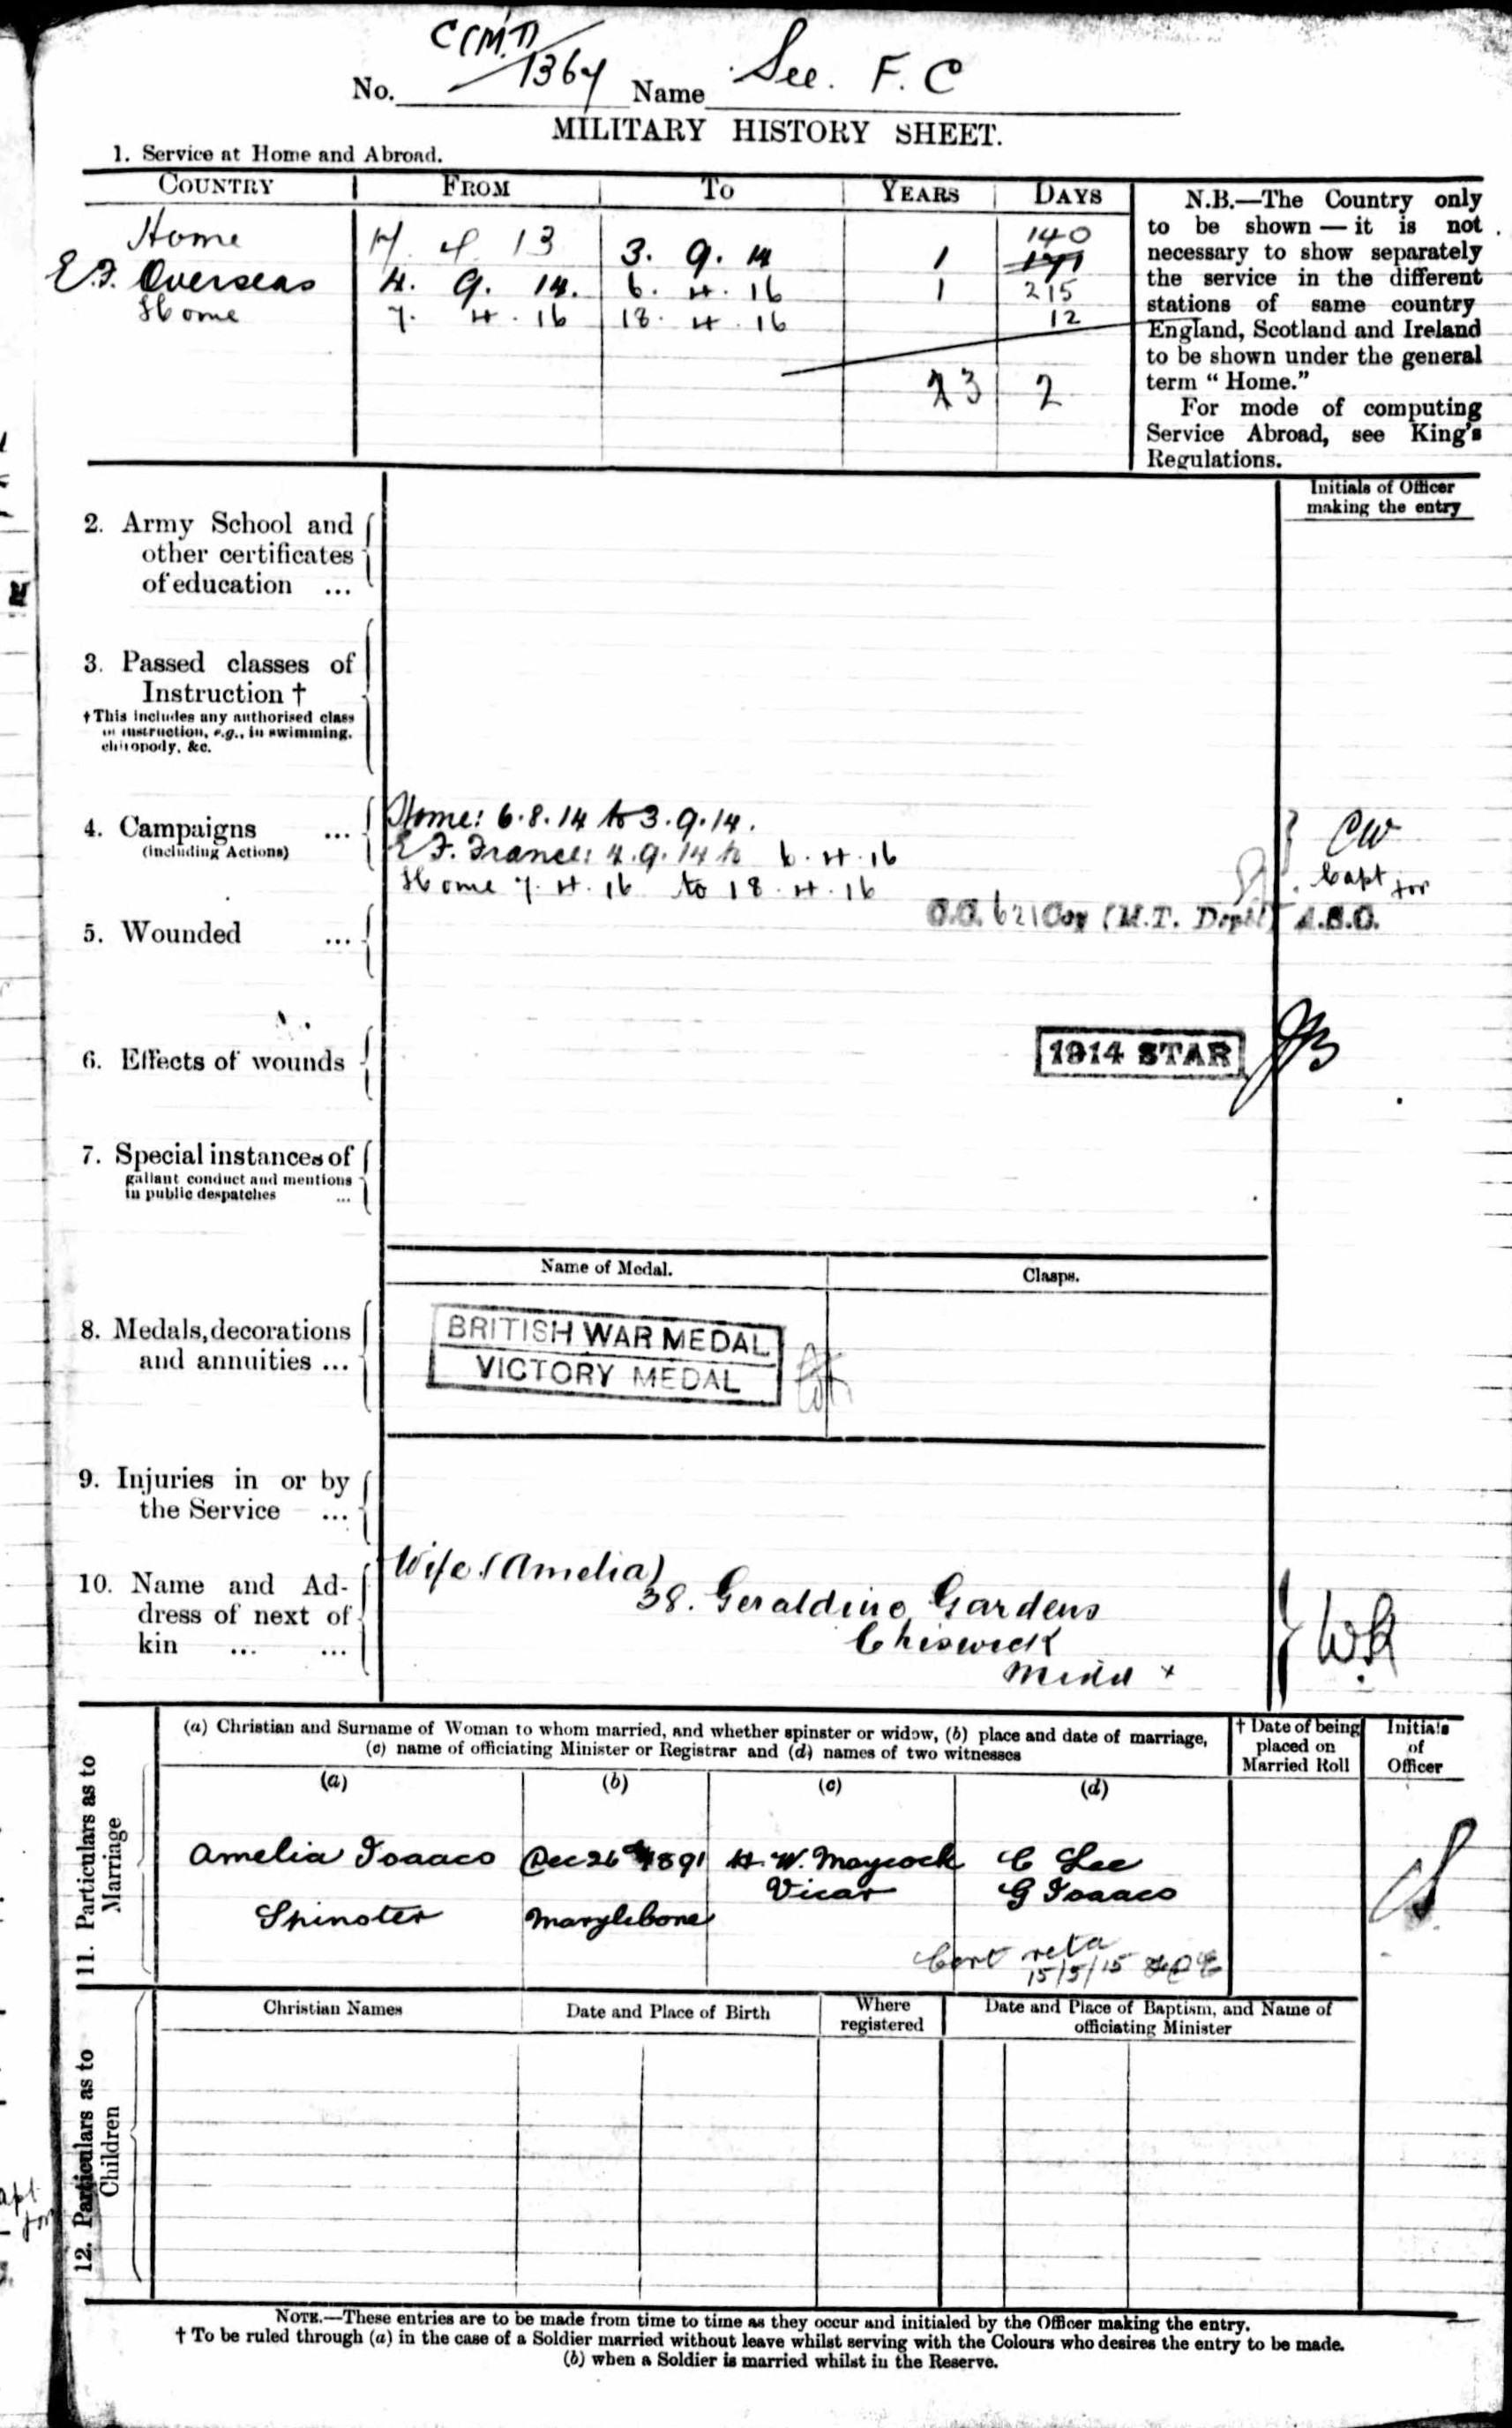 No. C(MT)/1364 Name See. F. C
MILITARY HISTORY SHEET.
1. Service at Home and Abroad.
COUNTRY FROM TO YEARS DAYS
Home 17 4 13 3. 9. 14 1 140 171
E.F. Overseas 4. 9. 14. 6. 4. 16 1 215
Home 7. 4. 16 18. 4. 16 12
3 2
N.B.—The Country only
to be shown — it is not
necessary to show separately
the service in the different
stations of same country
England, Scotland and Ireland
to be shown under the general
term “ Home.”
For mode of computing
Service Abroad, see King's
Regulations.
Initials of Officer
making the entry
2. Army School and
other certificates
of education ...
3. Passed classes of
Instruction †
† This includes any authorised class
of instruction, e.g., in swimming,
chiropody, &c.
4. Campaigns ...
(including Actions)
Home: 6.8.14 to 3.9.14.
E F. France: 4.9.14 to 6.4.16
Home 7.4.16 to 18.4.16
CW
Capt for
O.C. 621 Coy (M.T. Depôt) A.S.C.
5. Wounded ...
6. Effects of wounds
1914 STAR
7. Special instances of
gallant conduct and mentions
in public despatches ...
Name of Medal. Clasps.
8. Medals, decorations
and annuities ...
BRITISH WAR MEDAL
VICTORY MEDAL
9. Injuries in or by
the Service ...
10. Name and Ad-
dress of next of
kin ... ...
Wife (Amelia)
38. Geraldine Gardens
Chiswick
Middx
11. Particulars as to
Marriage
(a) Christian and Surname of Woman to whom married, and whether spinster or widow, (b) place and date of marriage,
(c) name of officiating Minister or Registrar and (d) names of two witnesses
† Date of being
placed on
Married Roll
Initials
of
Officer
(a) (b) (c) (d)
Amelia Isaacs Dec 26th 1891 H. W. Maycock C See
Vicar G Isaacs
Spinster Marylebone
Cert retd
15/5/15
12. Particulars as to
Children
Christian Names Date and Place of Birth Where
registered Date and Place of Baptism, and Name of
officiating Minister
NOTE.—These entries are to be made from time to time as they occur and initialed by the Officer making the entry.
† To be ruled through (a) in the case of a Soldier married without leave whilst serving with the Colours who desires the entry to be made.
(b) when a Soldier is married whilst in the Reserve.